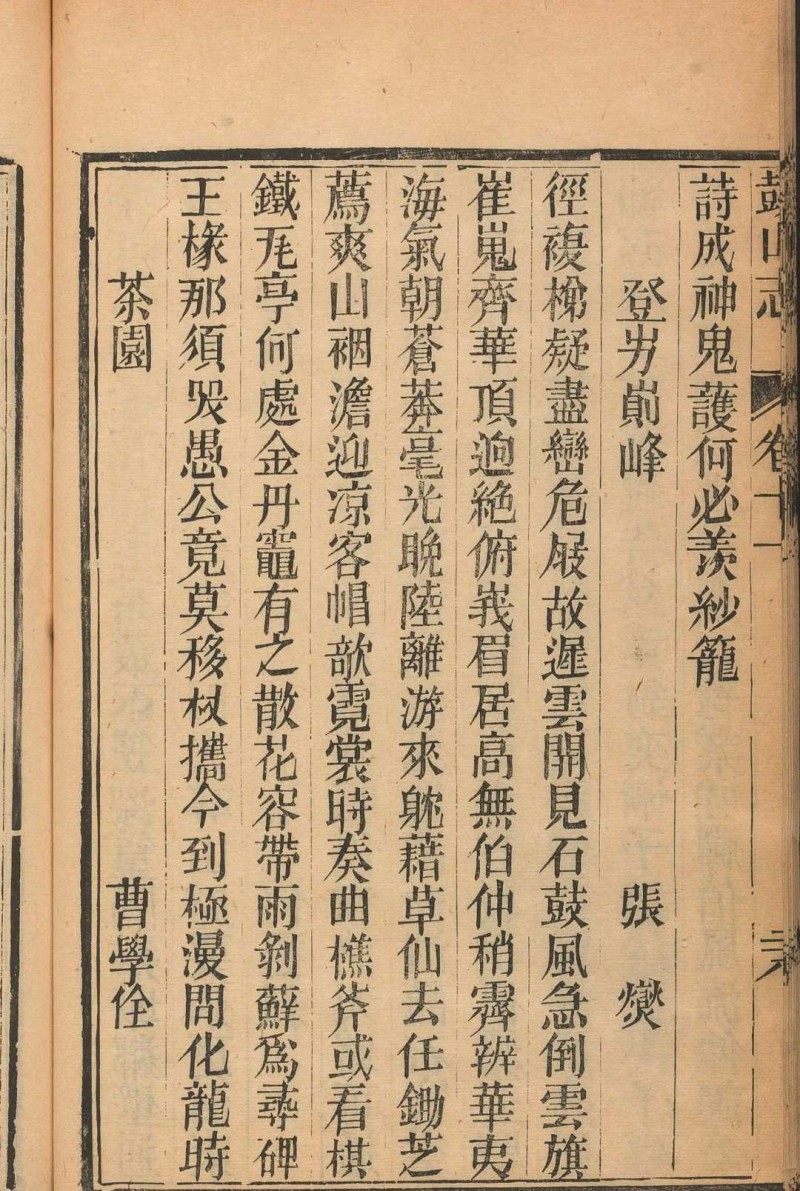 鼓山志 卷十一
詩成神鬼護何必羨紗籠
登屴崱峰 張燮
徑複梯疑盡巒危屐故遲雲開見石鼓風急倒雲旗
崔嵬齊華頂逈絶俯峩眉居高無伯仲稍霽辨華夷
海氣朝蒼莽毫光晚陸離游來躭藉草仙去任鋤芝
薦爽山裀澹迎凉客帽欹霓裳時奏曲樵斧或看棋
鐵瓦亭何處金丹竈有之散花容帶雨剝蘚爲尋碑
王椽那須哭愚公竟莫移杖攜今到極漫問化龍時
茶園 曹學佺